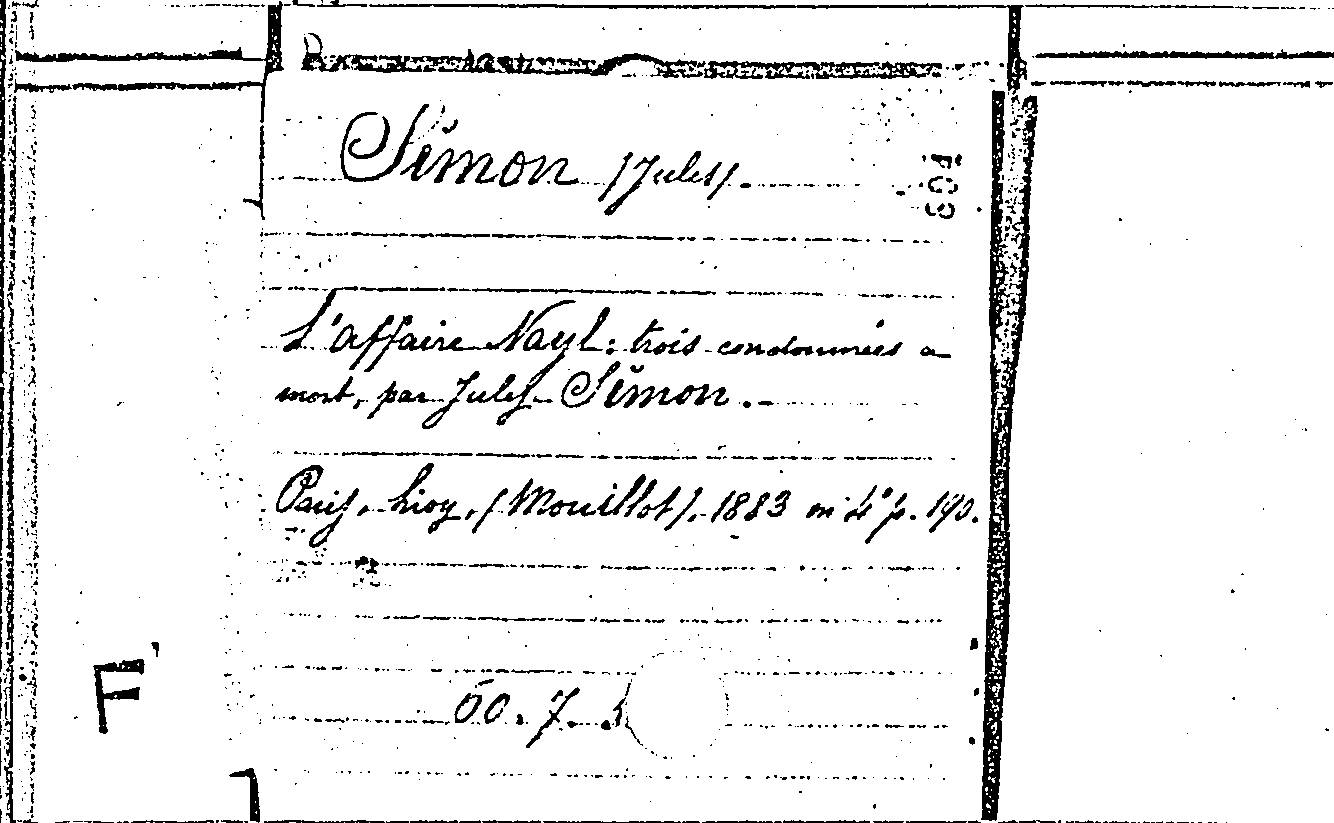 Simon (Jules).
601
L'affaire Nayl : trois condamnées a
mort, par Jules Simon. -
Paris, Lévy, (Mouillot). 1883 in 4° p. 190.
60. 7.
F